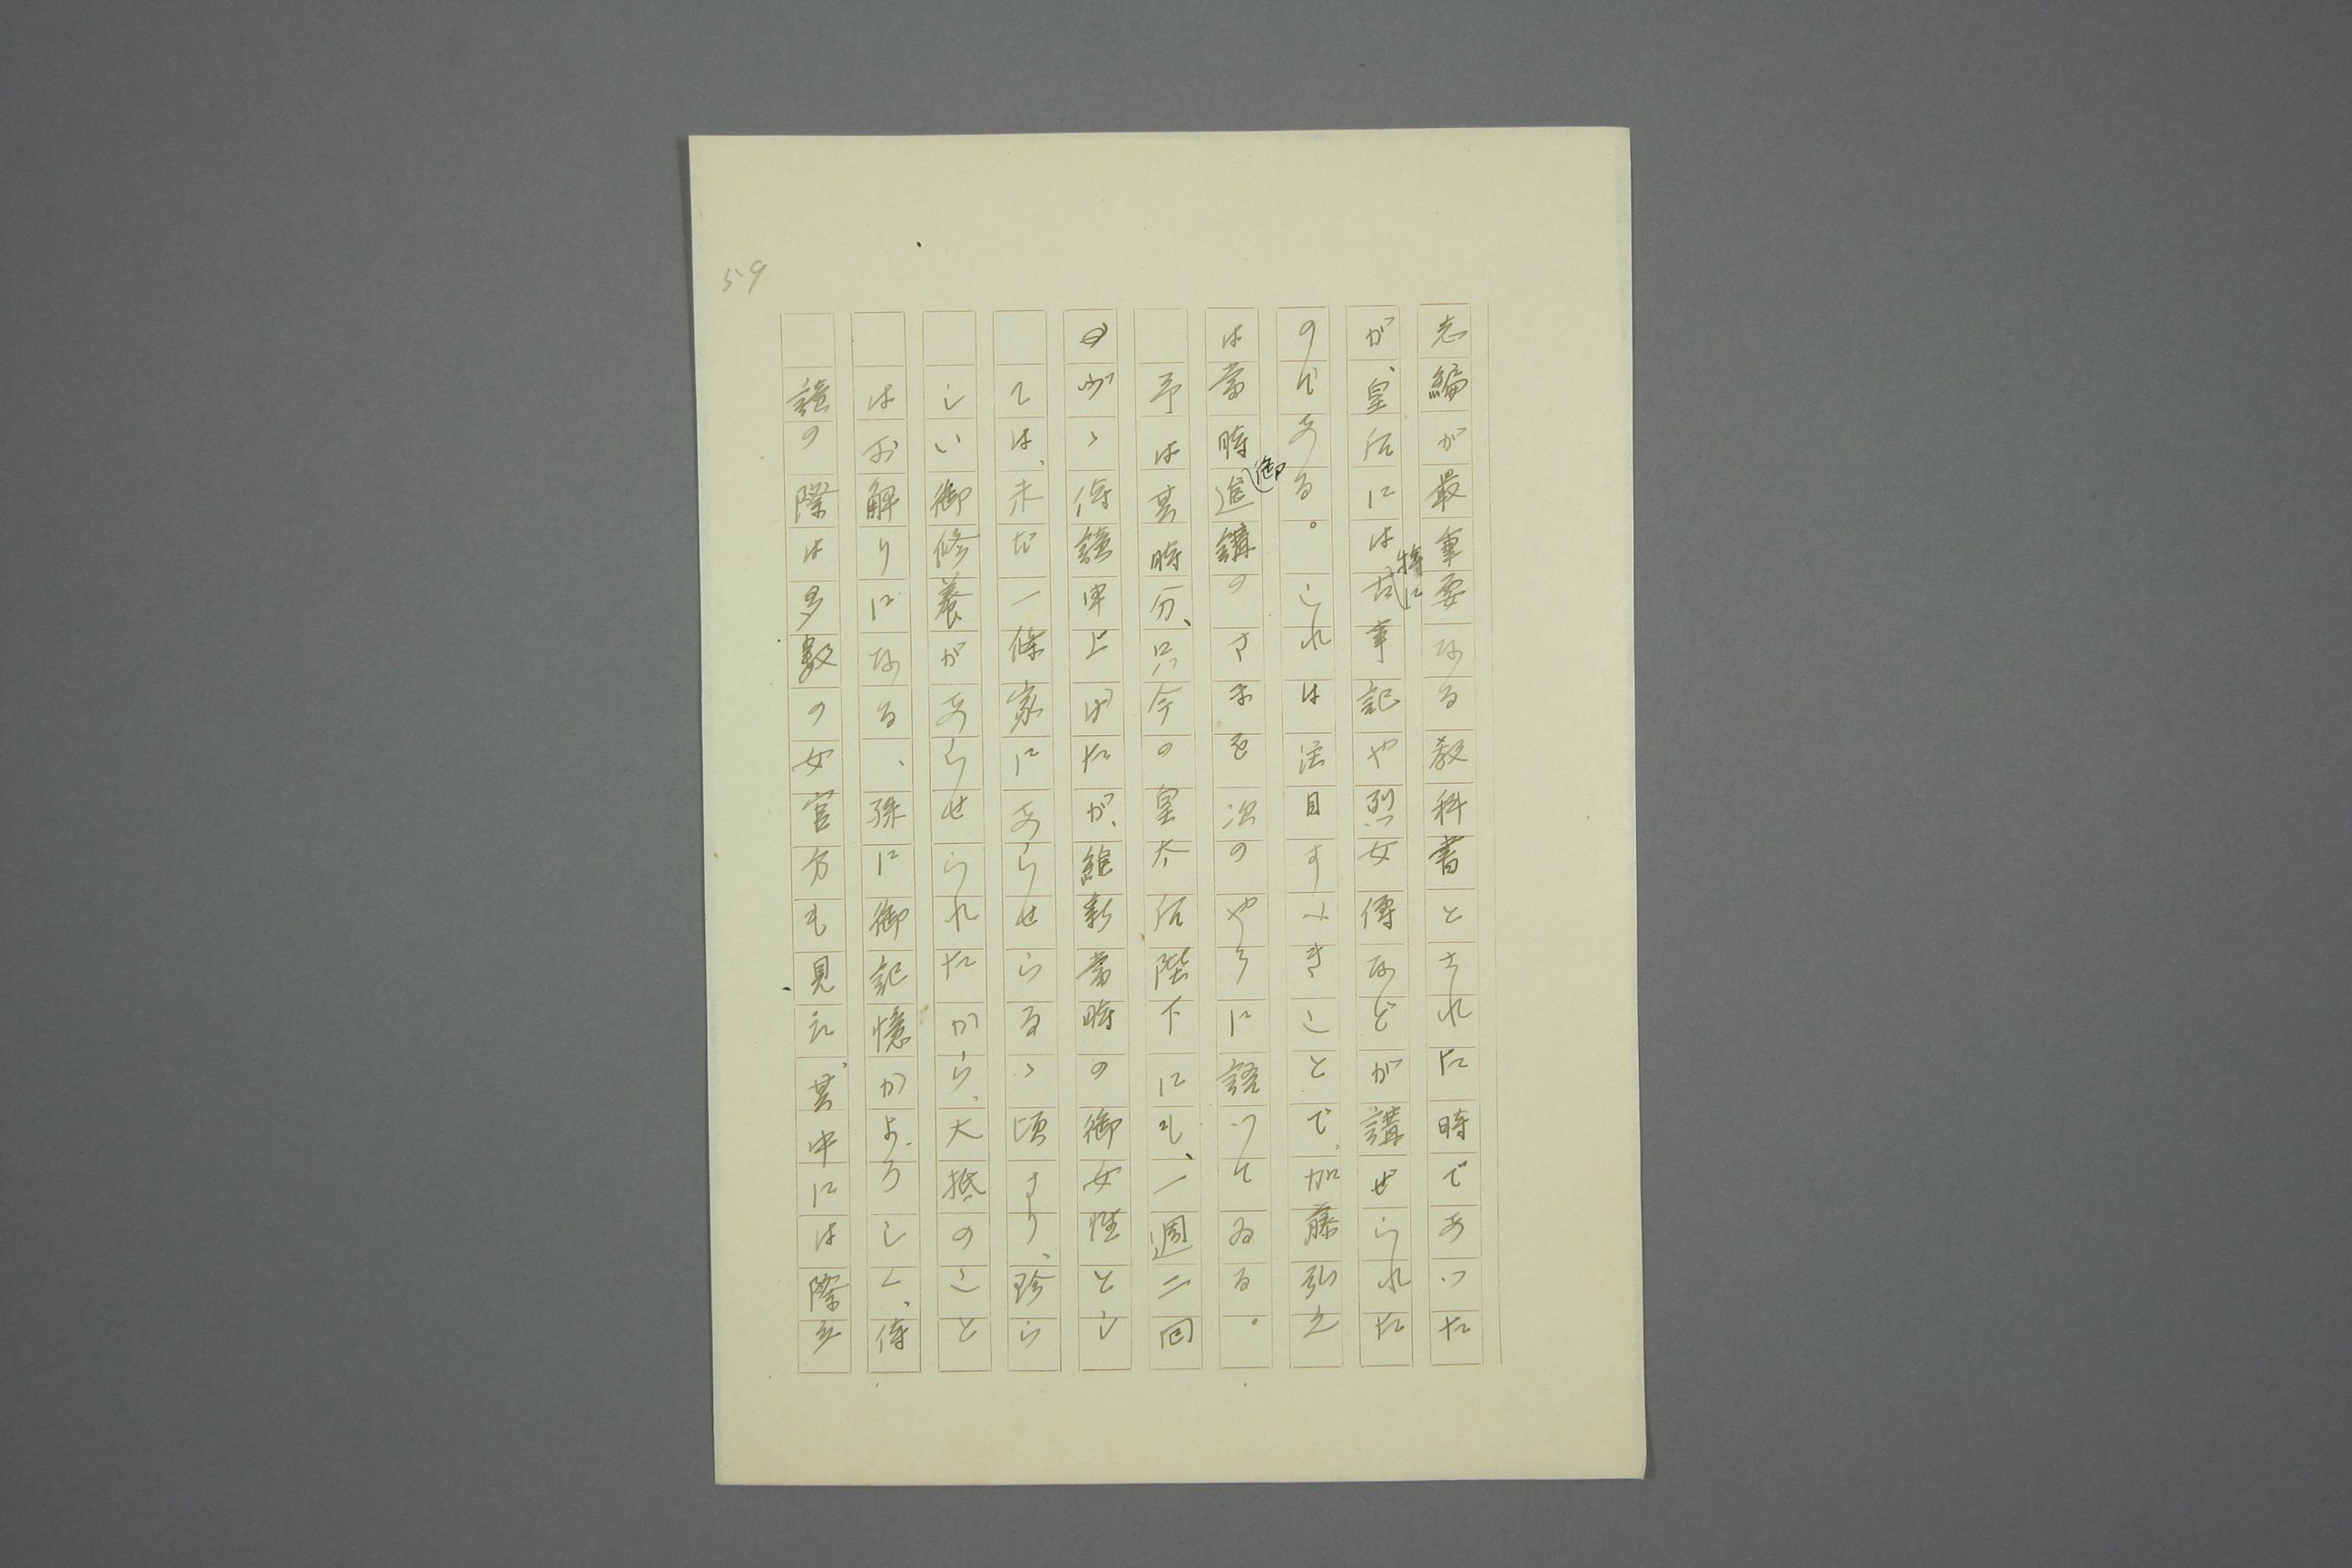 59
志編が最重要なる教科書とされた時であつた
が、皇后には特に古事記や烈女傳などが講ぜられた
のである。これは注目すべきことで、加藤弘之
は當時御進講のさまを次のやうに語つてゐる。
予は其時分、只今の皇太后陛下にも、一週二回
のが、侍讀申上げたが、維新當時の御女性とし
ては、未だ一條家にあらせらるゝ頃より、珍ら
しい御修養があらせられたから、大抵のこと
はお解りになる、殊に御記憶がよろしく、侍
讀の際は多數の女官方も見え、其中には際立